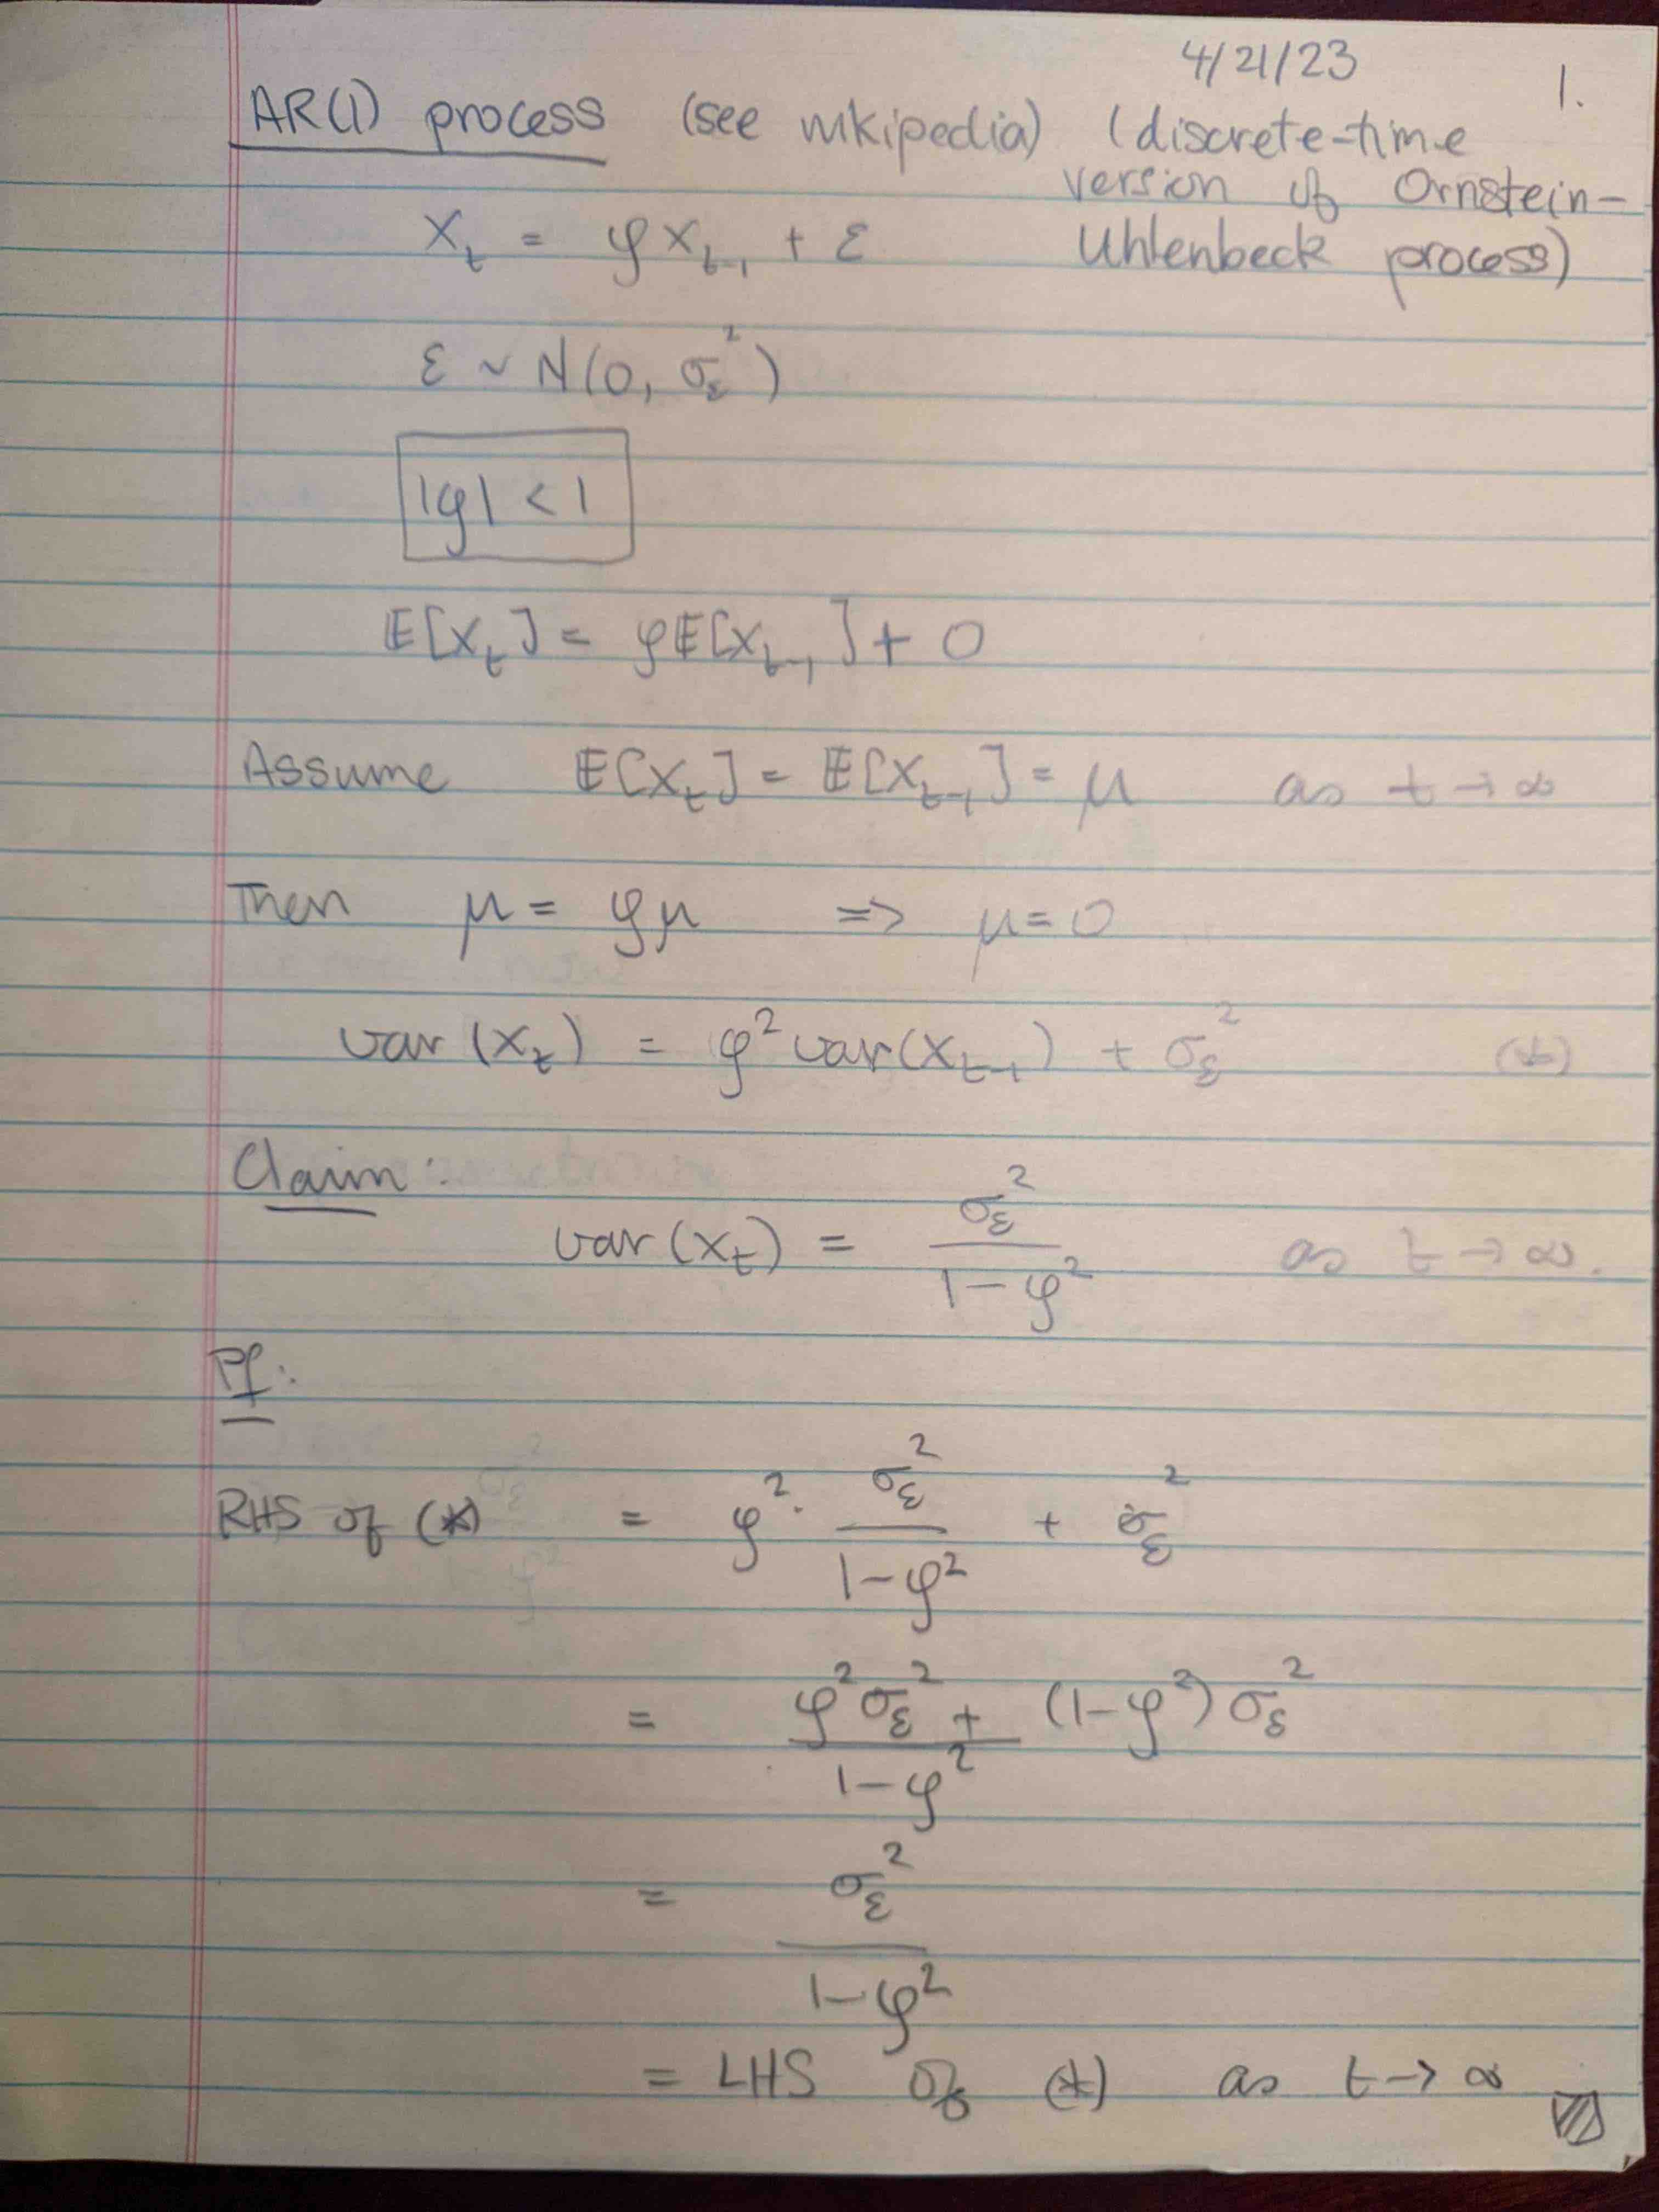 4/21/23
1.
AR(1) process (see wikipedia) (discrete-time
version of Ornstein-
Uhlenbeck process)
X_t = φX_{t-1} + ε
ε ~ N(0, σ_ε^2)
|φ| < 1
𝔼[X_t] = φ𝔼[X_{t-1}] + 0
Assume 𝔼[X_t] = 𝔼[X_{t-1}] = μ as t → ∞
Then μ = φμ => μ = 0
var(X_t) = φ^2 var(X_{t-1}) + σ_ε^2 (*)
Claim:
var(X_t) = σ_ε^2 / (1-φ^2) as t → ∞.
Pf:
RHS of (*) = φ^2 · σ_ε^2 / (1-φ^2) + σ_ε^2
= (φ^2 σ_ε^2 + (1-φ^2) σ_ε^2) / (1-φ^2)
= σ_ε^2 / (1-φ^2)
= LHS of (*) as t → ∞